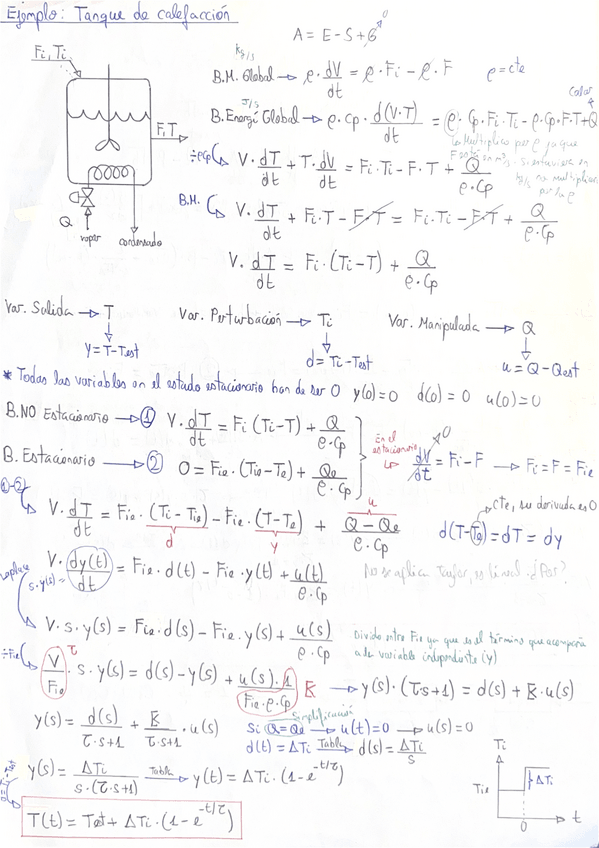 Ejemplo: Tanque de calefacción
A = E - S + G → 0
Fi, Ti
F, T
Q
vapor
condensado
kg/s
B.M. Global → ρ · dV/dt = ρ · Fi - ρ · F    ρ = cte
J/s
Calor
B. Energí Global → ρ · Cp · d(V·T)/dt = ρ · Cp · Fi · Ti - ρ · Cp · F · T + Q
Lo multiplico por ρ ya que
F está en m³/s. Si estuviera en
kg/s no multiplico
por la ρ
÷ρCp V · dT/dt + T · dV/dt = Fi · Ti - F · T + Q/(ρ · Cp)
B.M. V · dT/dt + Fi · T - F · T = Fi · Ti - F · T + Q/(ρ · Cp)
V · dT/dt = Fi · (Ti - T) + Q/(ρ · Cp)
Var. Salida → T    Var. Perturbación → Ti    Var. Manipulada → Q
y = T - Test    d = Ti - Test    u = Q - Qest
* Todas las variables en el estado estacionario han de ser 0  y(0) = 0  d(0) = 0  u(0) = 0
B. NO Estacionario → ① V · dT/dt = Fi (Ti - T) + Q/(ρ · Cp)
B. Estacionario → ② 0 = Fie · (Tie - Te) + Qe/(ρ · Cp)
En el
estacionario
dV/dt = Fi - F → Fi = F = Fie
0
①-② V · dT/dt = Fie · (Ti - Tie) - Fie · (T - Te) + (Q - Qe)/(ρ · Cp)
d    y    u
cte, su derivada es 0
d(T - Te) = dT = dy
V · dy(t)/dt = Fie · d(t) - Fie · y(t) + u(t)/(ρ · Cp)
No se aplica Taylor, es lineal
Laplace
s · y(s) =
V · s · y(s) = Fie · d(s) - Fie · y(s) + u(s)/(ρ · Cp)
Divido entre Fie ya que es el término que acompaña
a la variable independiente (y)
÷Fie V/Fie · s · y(s) = d(s) - y(s) + u(s) · 1/(Fie · ρ · Cp) K → y(s) · (τs + 1) = d(s) + K · u(s)
τ
y(s) = d(s)/(τ · s + 1) + K/(τ · s + 1) · u(s)
Simplificación
Si Q = Qe → u(t) = 0 → u(s) = 0
d(t) = ΔTi Tabla → d(s) = ΔTi/s
y(s) = ΔTi/(s · (τ · s + 1)) Tabla → y(t) = ΔTi · (1 - e^(-t/τ))
T(t) = Test + ΔTi · (1 - e^(-t/τ))
Ti
Tie
ΔTi
0
t